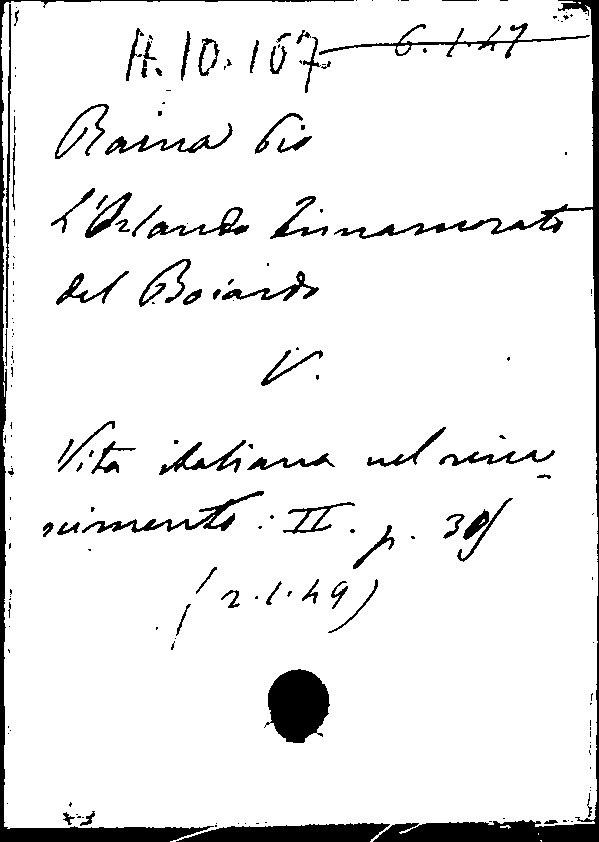 H.10.167 6.1.47
Raina Pio
L'Orlando Innamorato
del Boiardo
V.
Vita italiana nel rina-
scimento. II. p. 309
(2.1.49)